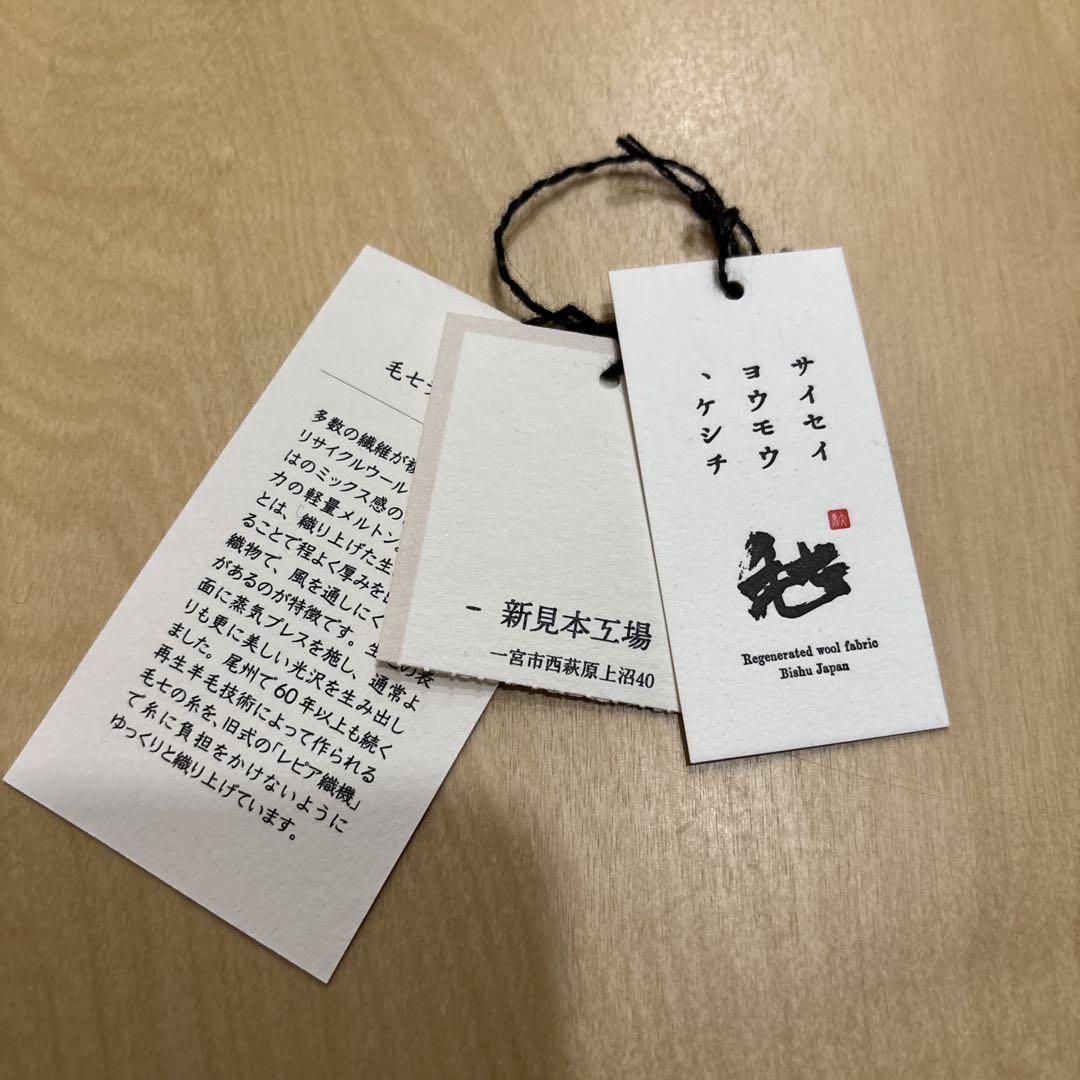 毛七
多数の繊維が
リサイクルウール
はのミックス感の
力の軽量メルトン。
とは、織り上げた生
ることで程よく厚みを
織物で、風を通しにく
があるのが特徴です。生
の表
面に蒸気プレスを施し、通常よ
りも更に美しい光沢を生み出し
ました。尾州で60年以上も続く
再生羊毛技術によって作られる
毛七の糸を、旧式の「レピア織機」
て糸に負担をかけないように
ゆっくりと織り上げています。
- 新見本工場
一宮市西萩原上沼40
サイセイ
ヨウモウ
、ケシチ
毛七
Regenerated wool fabric
Bishu Japan